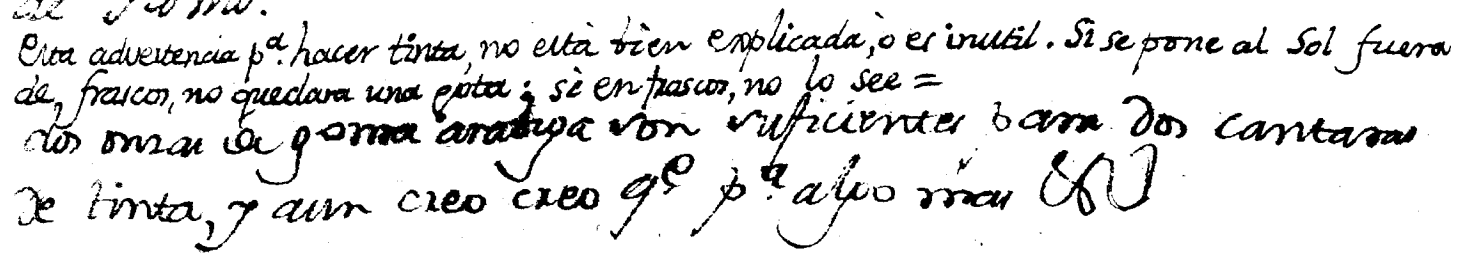 de
Esta advertencia p.ª hacer tinta, no està bien explicada, o es inutil. Si se pone al Sol fuera
de, frascos, no quedara una gota; si en frascos, no lo see =
dos onzas de goma arabiga son suficientes para dos cantaras
de tinta, y aun creo creo q.e p.ª algo mas